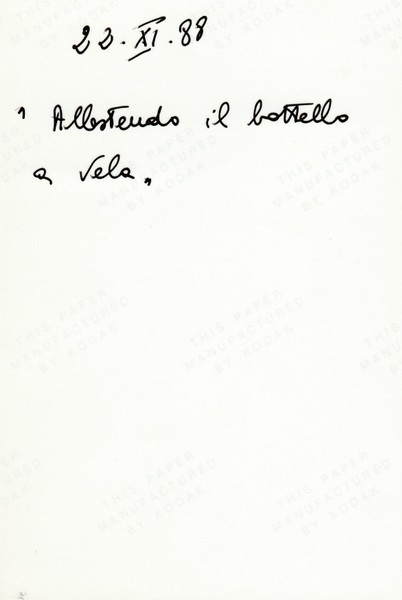 23.XI.88
" Allestendo il battello
a vela „
THIS PAPER
MANUFACTURED
BY KODAK
THIS PAPER
MANUFACTURED
BY KODAK
THIS PAPER
MANUFACTURED
BY KODAK
THIS PAPER
MANUFACTURED
BY KODAK
THIS PAPER
MANUFACTURED
BY KODAK
THIS PAPER
MANUFACTURED
BY KODAK